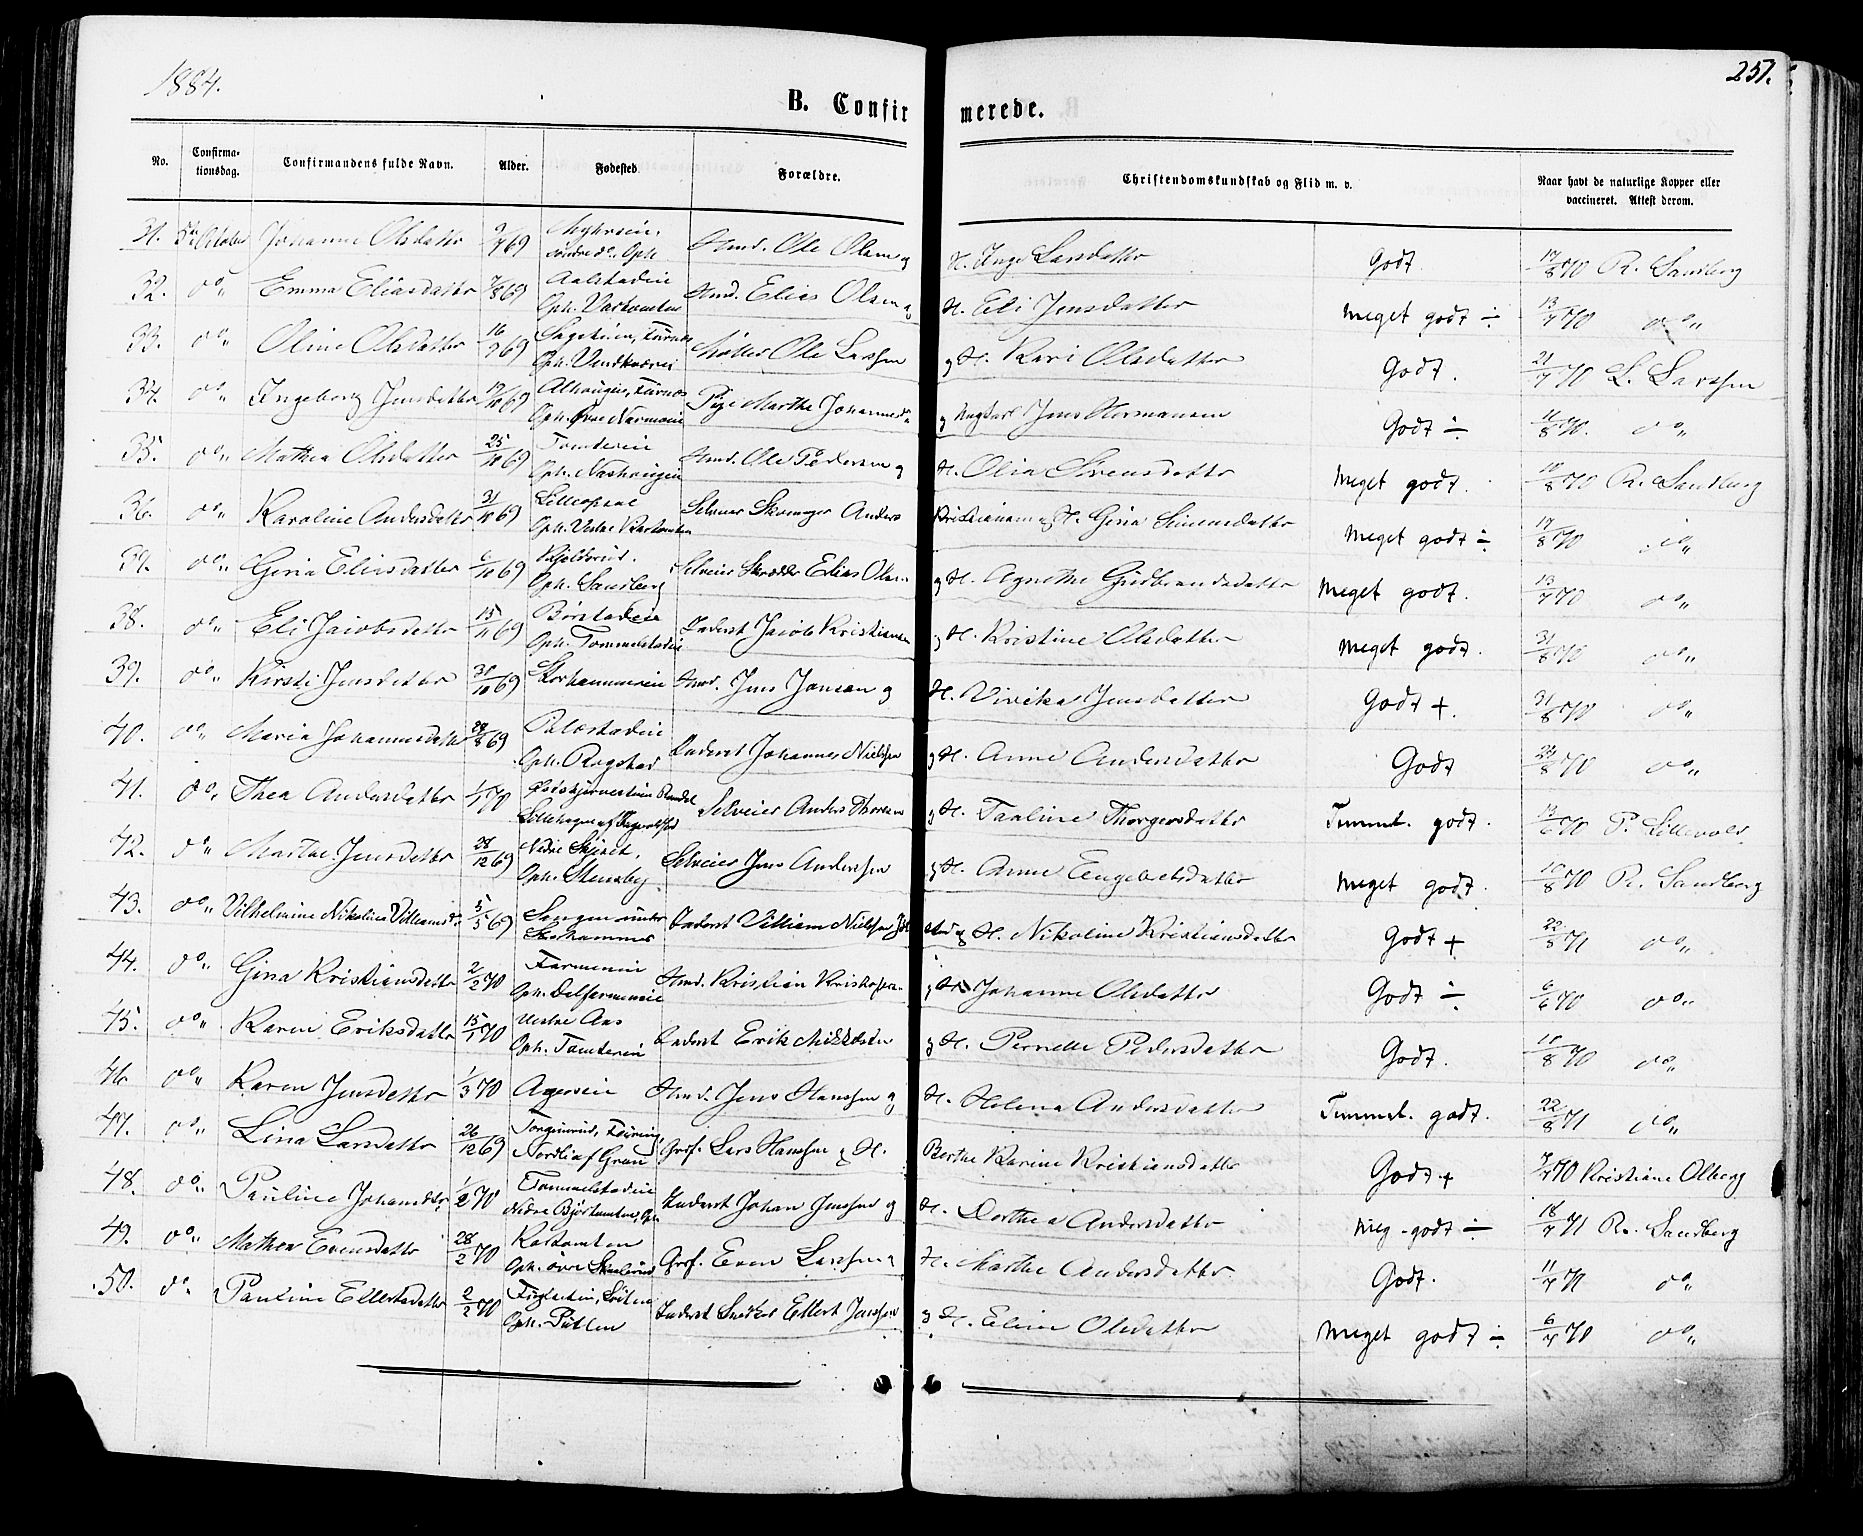 1884.
251.
B. Confirmerede.
No. Confirmationsdag. Confirmandens fulde Navn. Alder. Fødested. Forældre. Christendomskundskab og Flid m. v. Naar havt de naturlige Kopper eller vaccineret. Attest derom.
31. 5te October Johanne Olsdatter 9/7 69 søndre do. Oph. Hmd. Ole Olsen og H. Inge Larsdatter Godt. 17/8 70 R. Sandberg
32. do " Emma Eliasdatter 7/8 69 Aalstadeie Oph. Hmd. Elias Olsen og H. Eli Jensdatter Meget godt ÷ 13/7 70 do "
33. do " Oline Olsdatter 16/9 69 Oph. Møller Ole Larsen og H. Kari Olsdatter Godt. 21/7 70 L. Larssen
34. do " Ingeborg Jensdatter 19/10 69 Alhaugen, Furnes Oph. Øvre Pige Marthe Johannesd. og Ungkarl Jens Hermansen Godt ÷ 11/8 70. do "
35. do " Mathea Olsdatter 25/10 69 Tomtereie Oph. Hmd. Ole Pedersen og H. Olia Svensdatter Meget godt. 18/8 70 R. Sandberg
36. do " Karoline Andersdatter 31/10 69 Oph. Selveier Anders Kristiansen og H. Gina Simensdatter Meget godt ÷ 17/8 70 do "
37. do " Gina Eliasdatter 6/10 69 Kjeldsrud. Oph. Sandberg Selveier Skrædder Elias Olsen og H. Agnethe Gudbrandsdatter Meget godt. 13/7 70 do "
38. do " Eli Jacobsdatter 15/11 69 Børstadeie Oph. Tommelstadeie Inderst Jacob Kristiansen og H. Kristine Olsdatter Meget godt. 31/8 70 do "
39. do " Kirsti Jensdatter 31/10 69 Storhammereie Hmd. Jens Jonsen og H. Vivika Jensdatter Godt + 31/8 70 do "
40. do " Maria Johannesdatter 69 Oph. Rogstad Inderst Johannes Nielsen og H. Anne Andersdatter Godt 24/8 70 do "
41. do " Thea Andersdatter 1/1 70 Selveier Anders Thoresen og H. Pauline Thorgersdatter Temmel. godt. 12/6 70 P. Lillevold
42. do " Marthe Jensdatter 28/12 69 Nedre Oph. Stensby Selveier Jens Anderssen og H. Anne Engebretsdatter Meget godt. 10/8 70 R. Sandberg
43. do " Vilhelmine Nikoline Villiamsd. 5/5 69 Sangen under Storhammer Inderst Villiam Nielsen og H. Nikoline Kristiansdatter Godt + 22/8 71 do "
44. do " Gina Kristiansdatter 2/2 70 Farmenie Oph. Dalfarmeneie Hmd. Kristian og H. Johanne Olsdatter Godt ÷ 6/6 70 do "
45. do " Karen Eriksdatter 15/1 70 Vestre Aas Oph. Tomtereie Inderst Erik og H. Pernelle Pedersdatter Godt. 11/8 70 do "
46. do " Karen Jensdatter 1/3 70 Agerseie Hmd. Jens Hanssen og H. Helena Andersdatter Temmel. godt. 22/8 71 do "
47. do " Lina Larsdatter 26/12 69 Nordlie af Gran Grf. Lars Hanssen og H. Berthe Karine Kristiansdatter Godt + 7/7 70 Kristiane Olberg
48. do " Pauline Johansdtr. 1/2 70 Tommelstadeie Nedre Inderst Johan Jenssen og H. Dorthea Andersdatter Meg. godt ÷ 18/7 71 R. Sandberg
49. do " Mathea Evensdatter 28/2 70 Oph. øvre Grf. Even Larssen og H. Marthe Andersdatter Godt. 11/7 71 do "
50. do " Pauline Ellertsdatter 2/2 70 Oph. Putten Inderst Snedker Ellert Jenssen og H. Eline Olsdatter Meget godt ÷ 6/7 70 do "